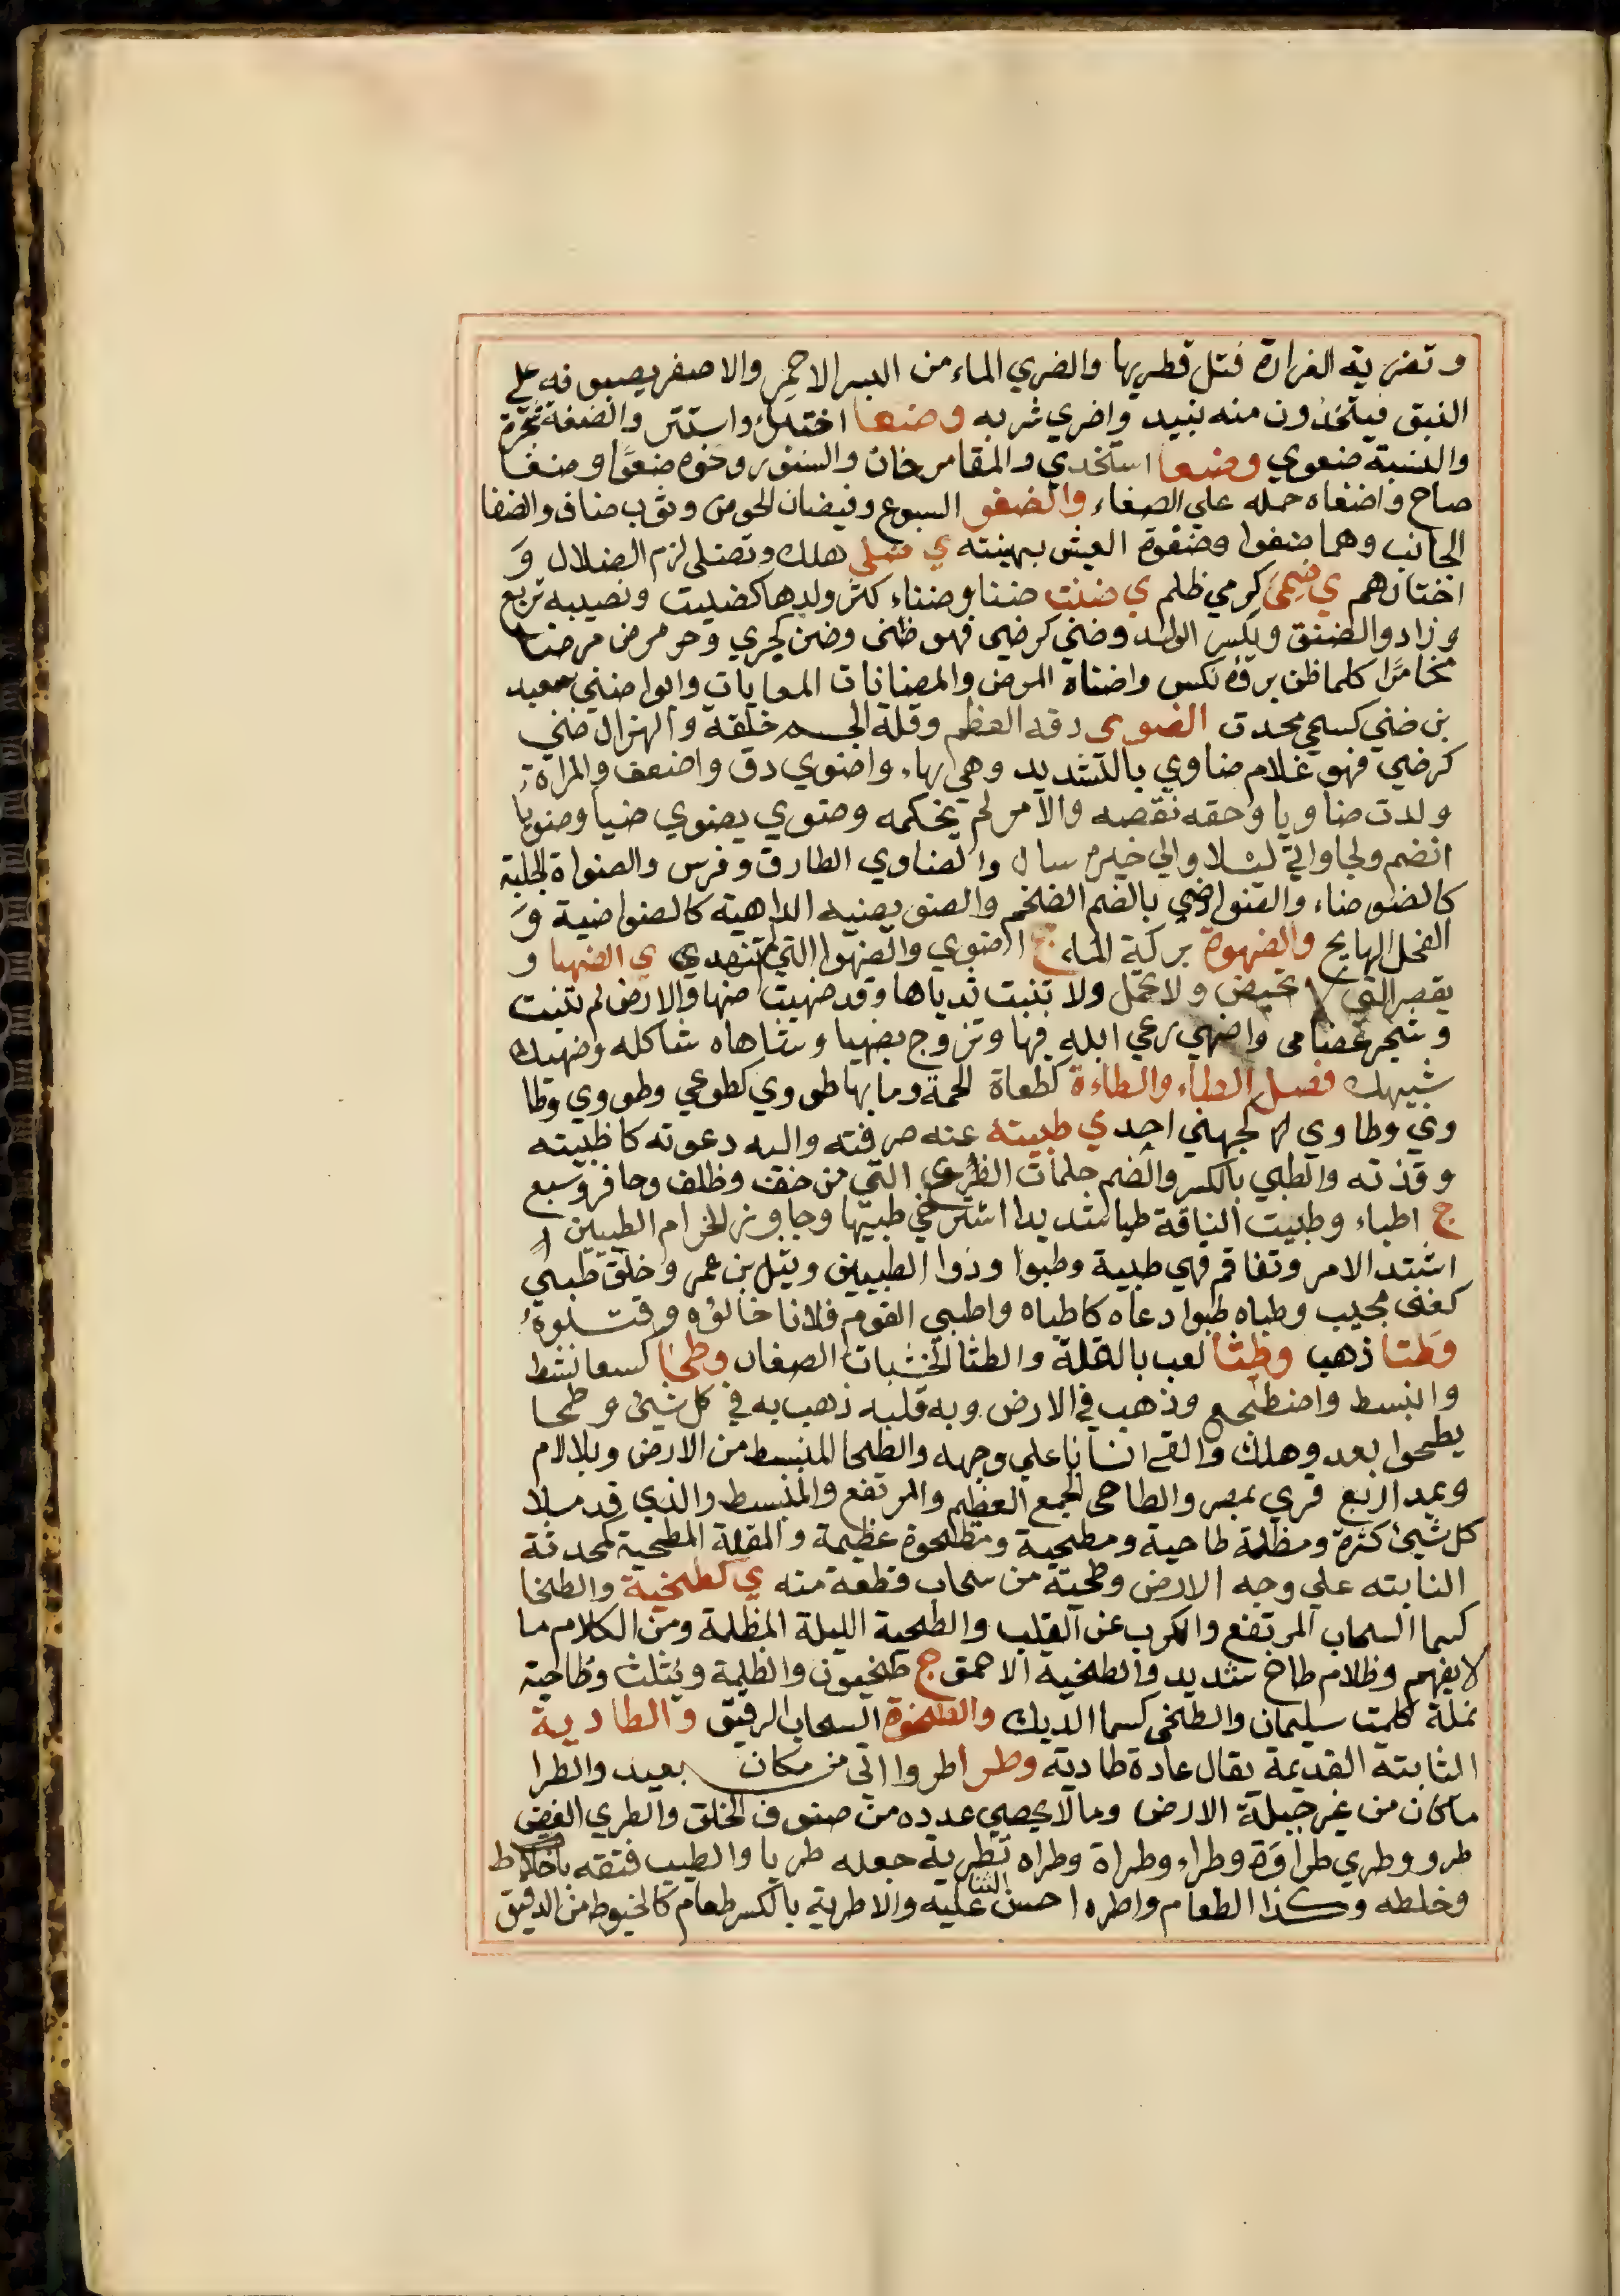 وتضرية الغرارة فتل قطريها والضري الماء من البسر الاحمر والاصفر يصبونه علي
النبق فيتخذون منه نبيد واضري شربه وضعا اختبا واستتر والضعة شجرة
والنسبة ضعوي وضغا استخدي والمقامر خان والسنور ونحوه ضغوا وضغا
صاح واضغاه حمله علي الضغاء والضفو السبوغ وفيضان الحوض وثوب ضاف والضفا
الجانب وهما ضفوا وضفوة العيش بهينته ي ضلي هلك وتضلي لزم الضلال و
اختارهم ي ضمى كرمي ظلم ي ضنت ضنا وضناء كثر ولدها كضنيت ونصيبه تربع
وزاد والضنو ويكسر الولد وضني كرضي فهو ضنى وضن كحري وحر مرض مرضا
مخامرا كلما ظن برؤه نكس واضناه المرض والمضانات المعايات وابوا ضني سعيد
بن ضني كسمي محدث الضوي دقه العظم وقلة الجسم خلقة والهزال ضني
كرضي فهو غلام ضاوي بالتشديد وهي بهاء واضوي دق واضعف والمراة
ولدت ضاويا وحقه نقصه والامر لم يحكمه وضوي يضوي ضيا وضويا
انضم ولجا واليَّ ليلا والي خيره سال والضاوي الطارق وفرس والضواة الجلبة
كالضوضاء والضواضي بالضم الضخم والضويضية الداهية كالضواضية و
الفحل الهايج والضهوة بركة الماء ج اضوي والضهوا التي لم تنهدي ي الضهيا و
يقصر التي لا تحيض ولا تحمل ولا تنبت ثدياها وقد ضهيت ضها والارض لم تنبت
وشجر عضامى واضهي رعي ابله فيها وتزوج بضهيا وضاهاه شاكله وضهيك
شبيهك فصل الطاء والطاءة كطعاة الحمة وما بها طووي كطوعي وطووي وطا
وي وطاوي لا كجهني احد ي طبيته عنه صرفته واليه دعوته كاطبيته
وقذته والطبي بالكسر والضم حلمات الضروع التي من خف وظلف وحافر وسبع
ج اطباء وطبيت الناقة طبا شديدا استرخي طبيها وجاوز الحزام الطبيين اي
اشتد الامر وتفاقم فهي طبية وطبوا وذوا الطبيين وثيل بن عمر وخلق طبي
كغنى مجيب وطباه طبوا دعاه كاطباه واطبي القوم فلانا خالؤه وقتلوه
وطتا ذهب وطثا لعب بالقلة والطثا الخشبات الصغار وطحا كسعا نشط
وانبسط واضطجع وذهب في الارض وبه قلبه ذهب به في كل شيئ وطحا
يطحوا بعد وهلك والقي انسانا علي وجهه والطحا المنبسط من الارض وبلا لام
ويمد اربع قري بمصر والطاحي الجمع العظيم والمرتفع والمنبسط والذي قد ملا
كل شيئ كثرة ومظلة طاحية ومطحية ومطحوة عظيمة والبقلة المطحية كمحدثة
النابته علي وجه الارض وطحية من سحاب قطعة منه ي كطخية والطخا
كسما السحاب المرتفع والكرب عن القلب والطخية الليلة المظلمة ومن الكلام ما
لا يفهم وظلام طاخ شديد والطخية الاحمق ج طخيون والظلمة ويثلث وطاخية
نملة كلمت سليمان والطخى كسما الديك والطخوة السحاب الرقيق والطادية
الثابتة القديمة يقال عادة طادية وطرا طروا اتى من مكان بعيد والطرا
ماكان من غير جبلة الارض ومالا يحصي عدده من صنوف الخلق والطري الغض
طرو وطري طراوة وطراء وطراة وطراه تطرية جعله طريا والطيب فتقه باخلاط
وخلطه وكذا الطعام واطره احسن الثنا عليه والاطرية بالكسر طعام كالخيوط من الدقيق